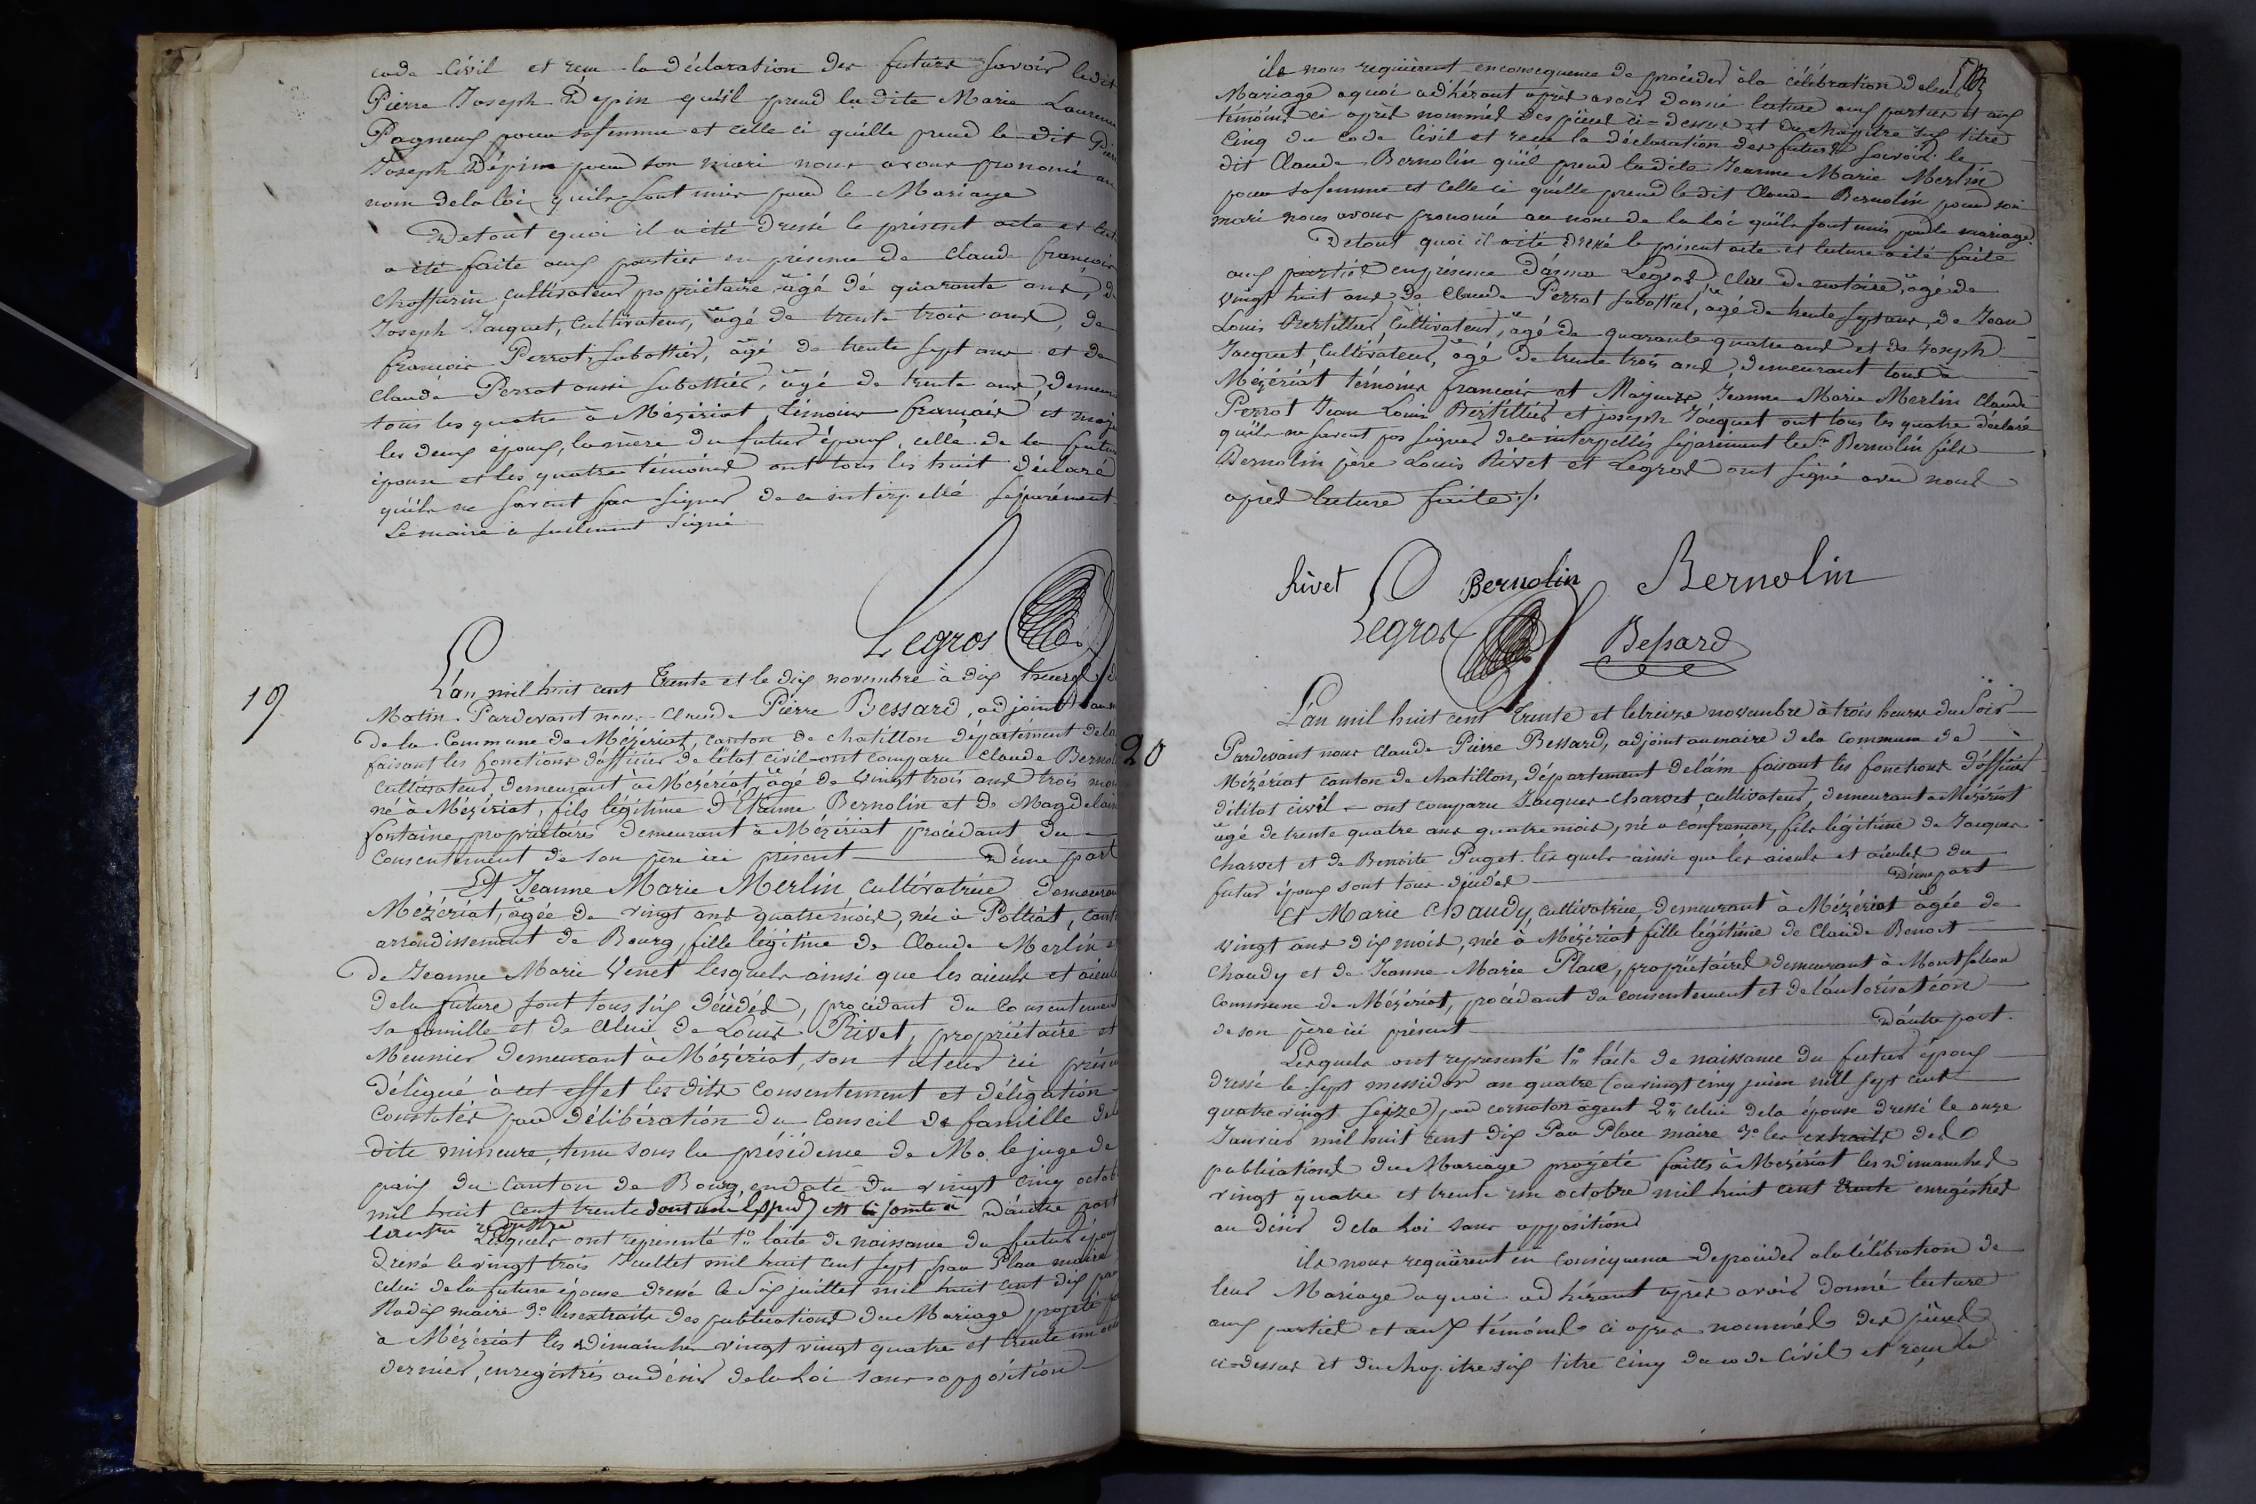 code Civil et reçu la déclaration des futurs savoir ledit
Pierre Joseph Dépin qu'il prend la dite Marie Laurence
Pagneux pour sa femme et celle ci qu'elle prend le dit Pierre
Joseph Dépin pour son mari nous avons prononcé au
nom de la loi qu'ils sont unis par le Mariage
De tout quoi il a été dressé le présent acte et lect
a été faite aux parties en présence de Claude françois
Choffurin cultivateur propriétaire agé de quarante ans, de
Joseph Jacquet, Cultivateur, agé de trente trois ans, de
françois Perrot, Sabottier, agé de trente sept ans et de
Claude Perrot aussi Sabottier, agé de trente ans, demeur
tous les quatre à Mézériat, témoins français et maje
les deux époux, la mère du futur époux, celle de la future
épouse et les quatre témoins ont tous les huit déclaré
qu'ils ne savent pas signer de ce interpellé séparément
Le maire a seulement signé
Legros
19
L'an mil huit cent trente et le dix novembre à dix heures d
Matin. Pardevant nous Claude Pierre Bessard, adjoint au m
de la Commune de Mézériat, canton de chatillon département de la
faisant les fonctions d'officier de l'état civil ont comparu Claude Bernol
cultivateur, demeurant à Mézériat, agé de vingt trois ans trois mois
né à Mézériat, fils légitime d'Etienne Bernolin et de Magdelaine
fontaine, propriétaires demeurant à Mézériat procédant du
Consentement de son père ici présent d'une part
Et Jeanne Marie Merlin cultivatrice demeurant
Mézériat, agée de vingt ans quatre mois, née à Polliat, cant
arrondissement de Bourg, fille légitime de Claude Merlin et
de Jeanne Marie Venet lesquels ainsi que les aieuls et aieule
de la future sont tous six décédés, procédant du Consentement
sa famille et de celui de Louis Rivet, propriétaire et
Meunier demeurant à Mézériat, son tuteur ici prése
délégué à cet effet les dits Consentement et délégation
Constatés par délibération du Conseil de famille de la
dite mineure, tenu sous la présidence de Mr. le juge de
paix du canton de Bourg en date du vingt cinq octob
mil huit cent trente dont une est ci jointe d'autre part
Lesquels ont représenté 1° l'acte de naissance du futur époux
dressé le vingt trois Juillet mil huit cent sept par Place maire
celui de la future épouse dressé le Six juillet mil huit cent dix par
maire 3° les extraits des publications du Mariage projeté
à Mézériat les dimanches vingt vingt quatre et trente un octo
dernier, enregistrés au désir de la Loi sans opposition
ils nous requièrent en conséquence de procéder à la célébration de leur
Mariage a quoi adhérant après avoir donné lecture aux parties et aux
témoins ci après nommés des pièces ci-dessus et du chapitre six titre
Cinq du code Civil et reçu la déclaration des futurs Savoir le
dit Claude Bernolin qu'il prend la dite Jeanne Marie Merlin
pour sa femme et celle ci qu'elle prend le dit Claude Bernolin pour son
mari nous avons prononcé au nom de la loi qu'ils sont unis par le mariage.
De tout quoi il a été dressé le présent acte et lecture a été faite
aux parties en présence d'asma Legros, Clerc de notaire, agé de
vingt huit ans, de Claude Perrot Sabottier, agé de trente sept ans, de Jean
Louis Bertillier, Cultivateur, agé de quarante quatre ans et de Joseph
Jacquet, Cultivateur, agé de trente trois ans, demeurant tous à
Mézériat témoins français et Majeurs Jeanne Marie Merlin Claude
Perrot Jean Louis Bertillier et joseph Jacquet ont tous les quatre déclaré
qu'ils ne savent pas signer de ce interpellés séparément les Srs Bernolin fils
Bernolin père Louis Rivet et Legros ont signé avec nous
après lecture faite ./.
Rivet Bernolin Bernolin
Legros Bessard
20
L'an mil huit cent trente et le treize novembre à trois heures du Soir
Pardevant nous Claude Pierre Bessard, adjoint au maire de la Commune de
Mézériat canton de chatillon, département de l'ain faisant les fonctions d'officier
d'état civil ont comparu Jacques Charvet, cultivateur, demeurant à Mézériat
agé de trente quatre ans quatre mois, né a Confrançon, fils légitime de Jacques
Charvet et de Benoite Puget lesquels ainsi que les aieuls et aieules du
futur époux sont tous décédés d'une part
Et Marie Chaudy, Cultivatrice, demeurant à Mézériat agée de
vingt ans dix mois, née à Mézériat fille légitime de Claude Benoit
Chaudy et de Jeanne Marie Place, propriétaires demeurant à Montfalcon
Commune de Mézériat, procédant du consentement et de l'autorisation
de son père ici présent d'autre part.
Lesquels ont représenté 1° l'acte de naissance du futur époux
dressé le sept messidor an quatre (ou vingt cinq juin mil sept cent
quatre vingt Seize) par cornaton agent 2° celui de la épouse dressé le onze
Janvier mil huit cent dix Par Place maire 3° les extraits des
publications du Mariage projeté faites à Mézériat les dimanches
vingt quatre et trente un octobre mil huit cent trente enregistrés
au désir de la Loi sans opposition
ils nous requièrent en conséquence de procéder a la célébration de
leur Mariage a quoi adhérant après avoir donné lecture
aux parties et aux témoins ci après nommés des pièces
ci-dessus et du chapitre six titre cinq du code Civil et reçu la